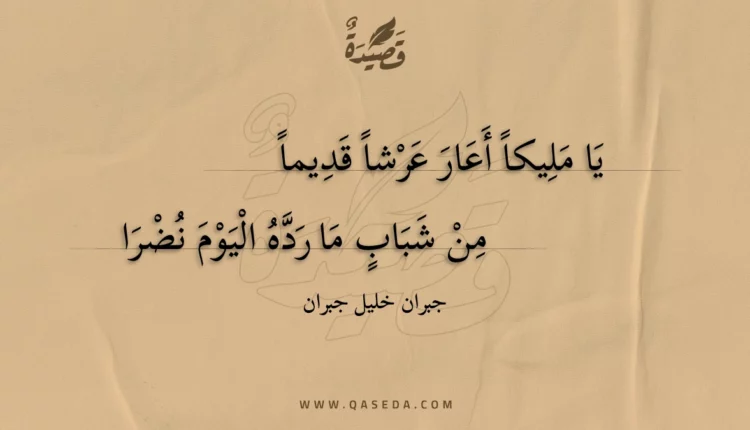 قَصِيْدَةٌ
يَا مَلِيكاً أَعَارَ عَرْشاً قَدِيماً
مِنْ شَبَابٍ مَا رَدَّهُ الْيَوْمَ نُضْرَا
جبران خليل جبران
WWW.QASEDA.COM